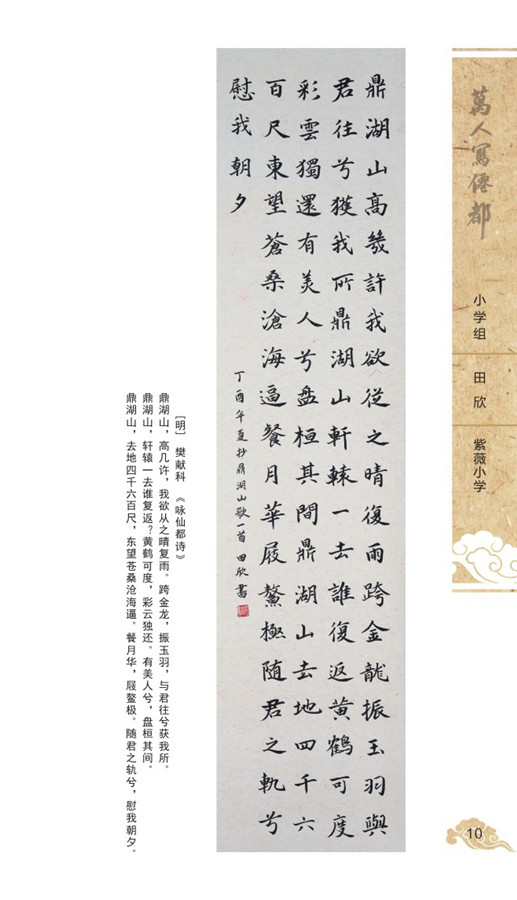 萬人寫僊都
小学组
田欣
紫薇小学
10
鼎湖山高幾許我欲從之晴復雨跨金龍振玉羽與
君往兮獲我所鼎湖山軒轅一去誰復返黄鶴可度
彩雲獨還有美人兮盘桓其間鼎湖山去地四千六
百尺東望蒼桑滄海逼餐月華屐鰲極随君之軌兮
慰我朝夕
丁酉年夏抄鼎湖山歌一首田欣書
[明] 樊献科 《咏仙都诗》
鼎湖山，高几许，我欲从之晴复雨。跨金龙，振玉羽，与君往兮获我所。
鼎湖山，轩辕一去谁复返？黄鹤可度，彩云独还。有美人兮，盘桓其间。
鼎湖山，去地四千六百尺，东望苍桑沧海逼。餐月华，屐鳌极。随君之轨兮，慰我朝夕。